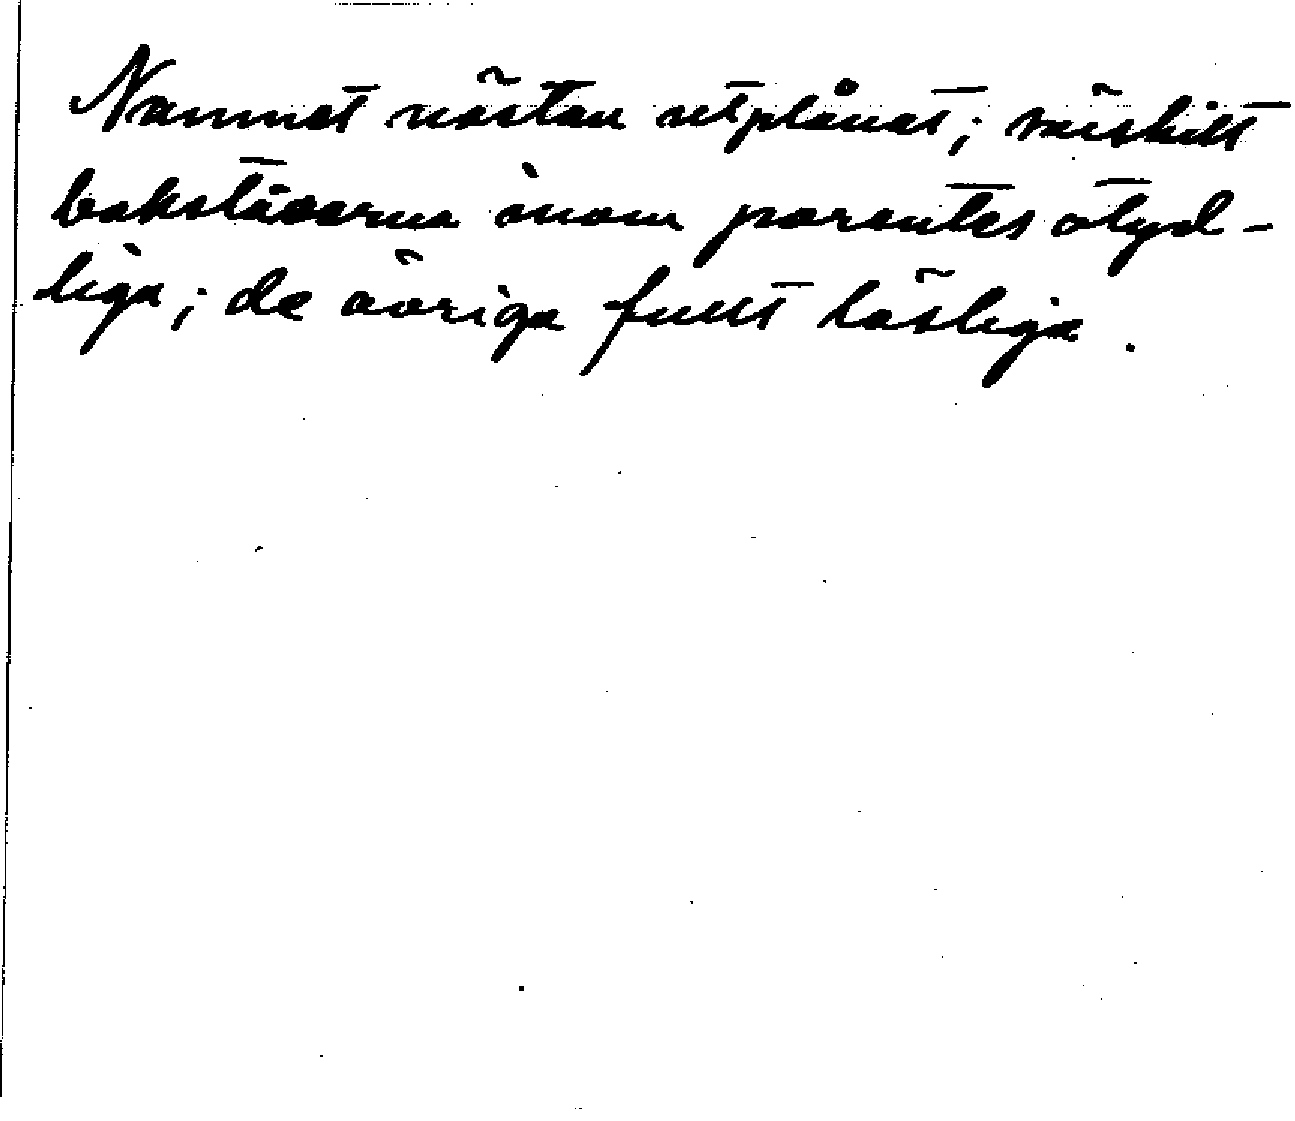 Namnet nästan utplånat; särskilt
bokstäverna inom parentes otyd-
liga; de övriga fullt läsliga.